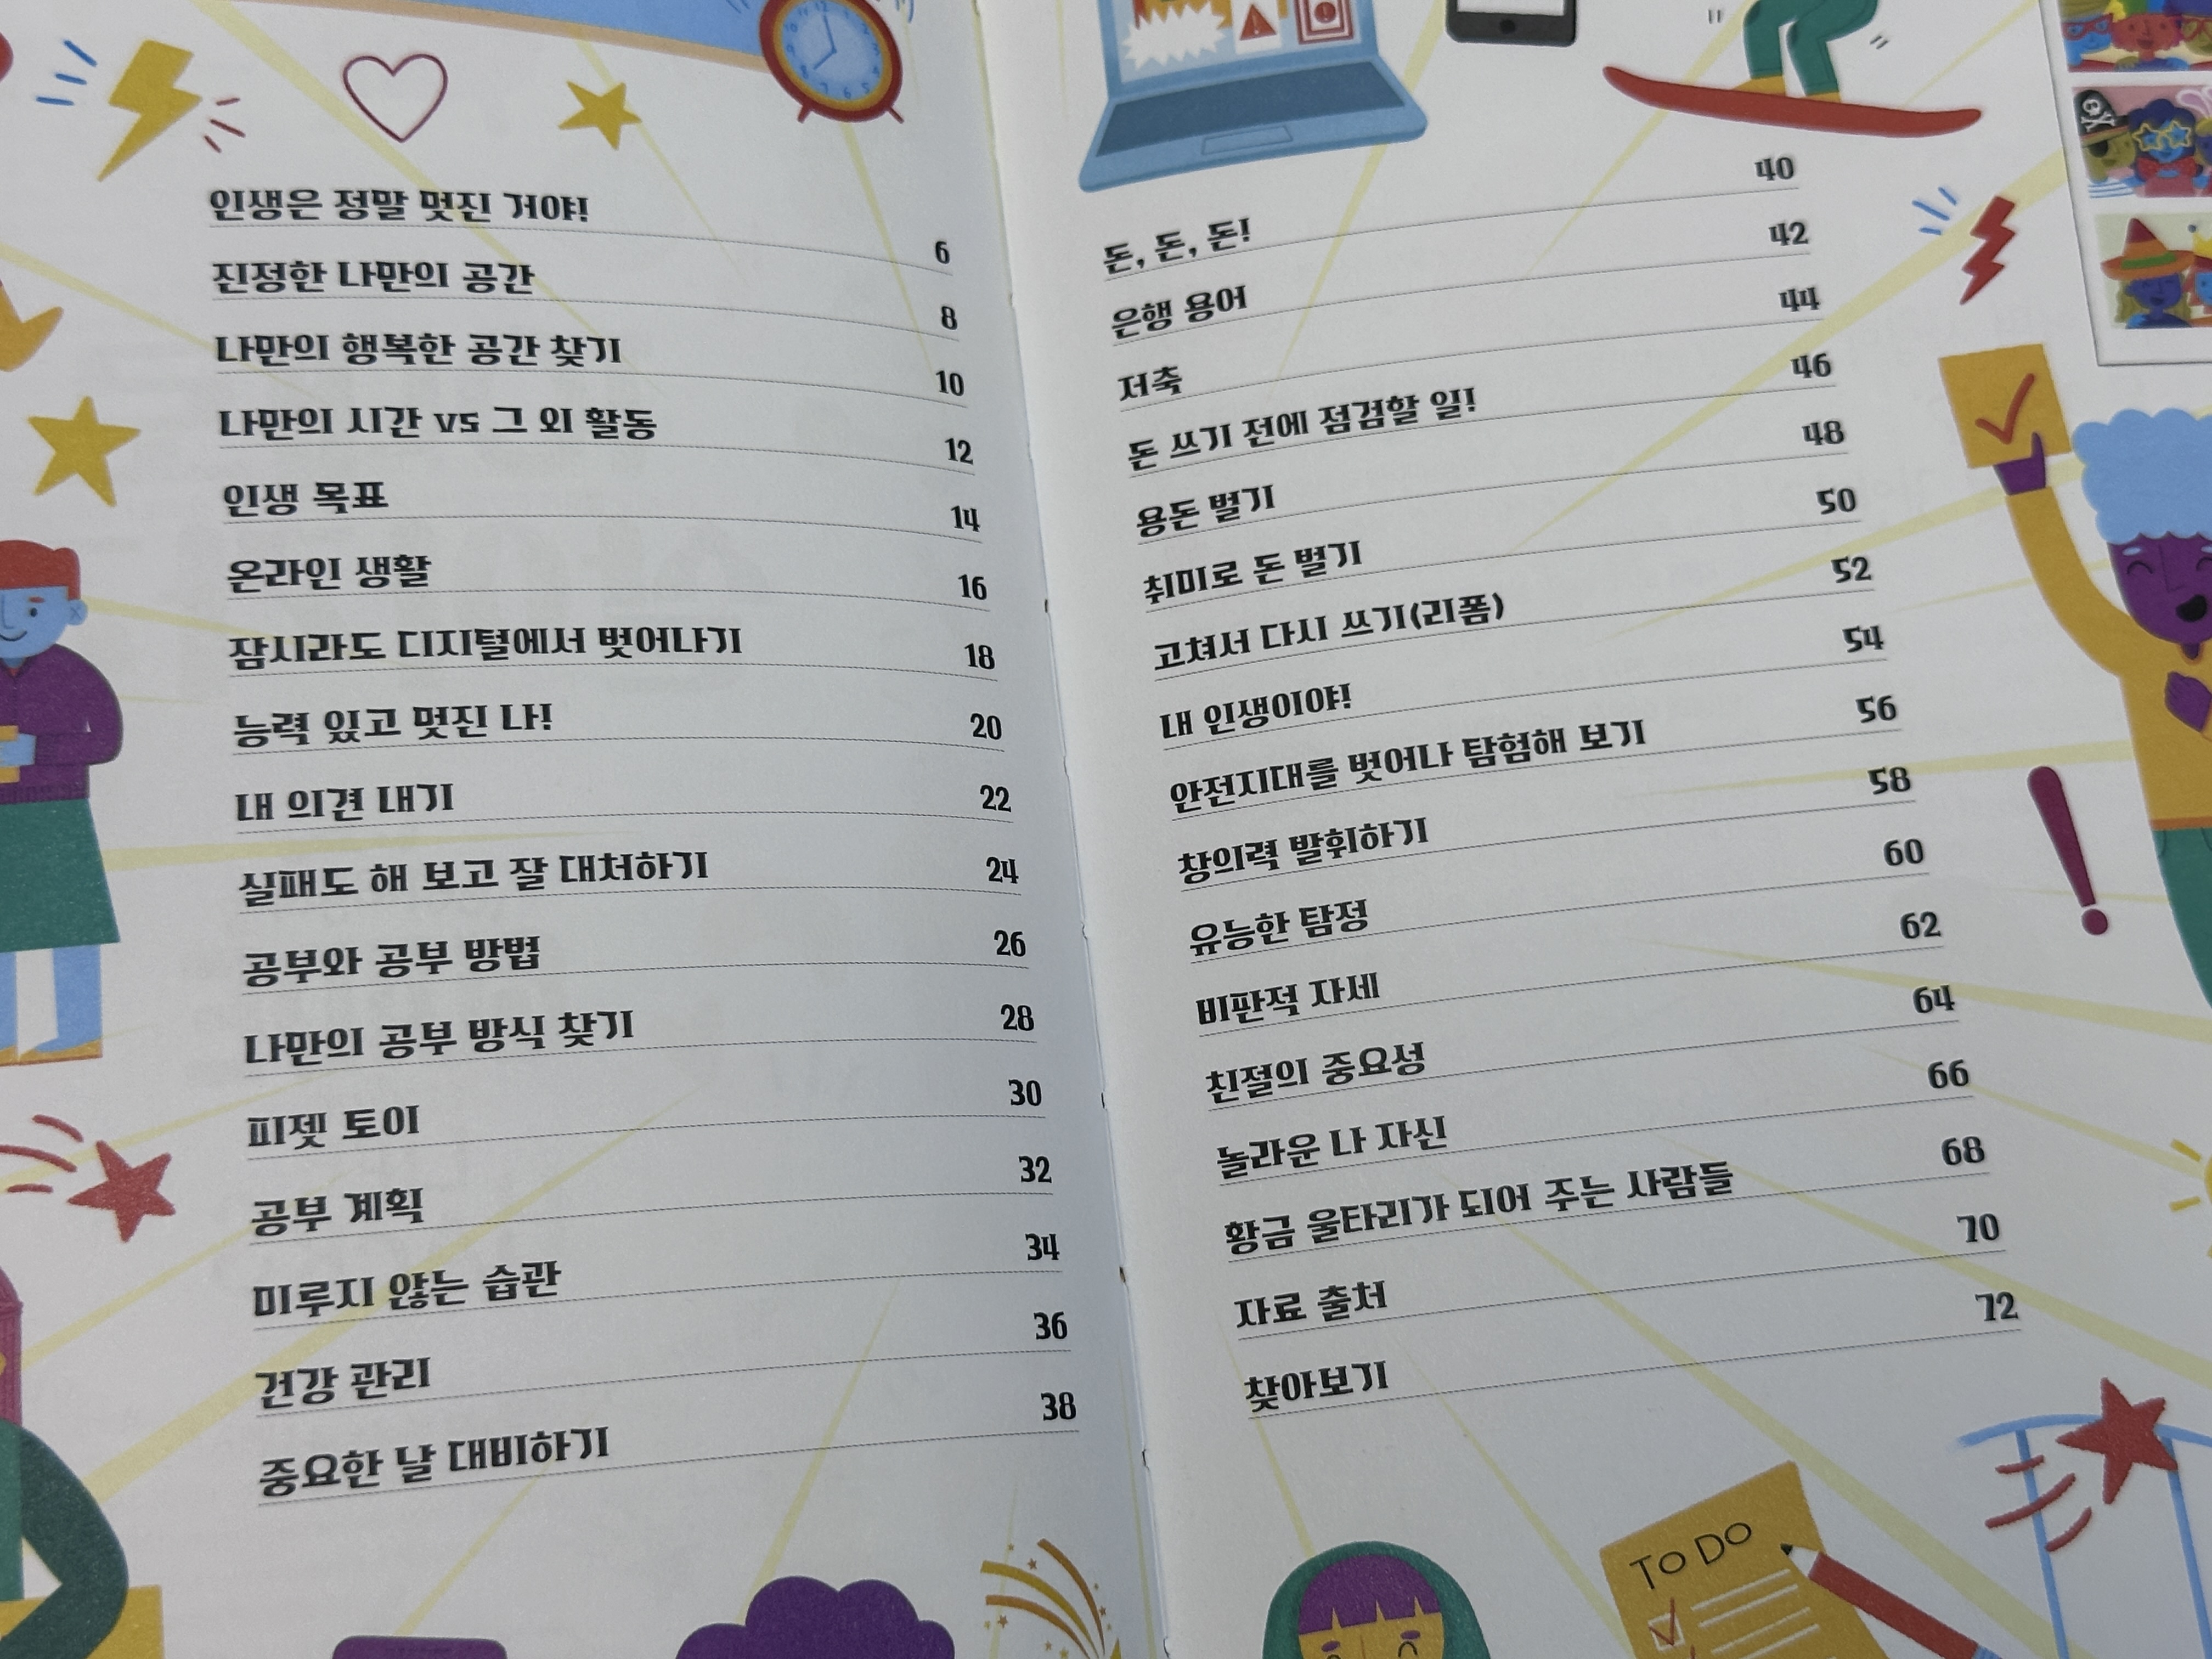 인생은 정말 멋진 거야! 6
진정한 나만의 공간 8
나만의 행복한 공간 찾기 10
나만의 시간 vs 그 외 활동 12
인생 목표 14
온라인 생활 16
잠시라도 디지털에서 벗어나기 18
능력 있고 멋진 나! 20
내 의견 내기 22
실패도 해 보고 잘 대처하기 24
공부와 공부 방법 26
나만의 공부 방식 찾기 28
피젯 토이 30
공부 계획 32
미루지 않는 습관 34
건강 관리 36
중요한 날 대비하기 38
돈, 돈, 돈! 40
은행 용어 42
저축 44
돈 쓰기 전에 점검할 일! 46
용돈 벌기 48
취미로 돈 벌기 50
고쳐서 다시 쓰기(리폼) 52
내 인생이야! 54
안전지대를 벗어나 탐험해 보기 56
창의력 발휘하기 58
유능한 탐정 60
비판적 자세 62
친절의 중요성 64
놀라운 나 자신 66
황금 울타리가 되어 주는 사람들 68
자료 출처 70
찾아보기 72
TO DO